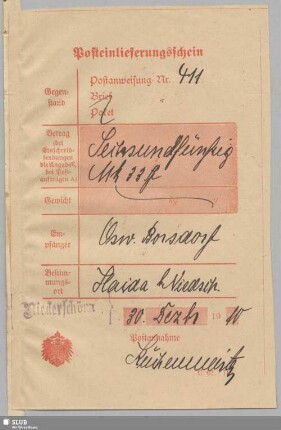 Posteinlieferungsschein
Gegen-
stand
Postanweisung Nr. 411
Brief
Paket
Betrag
(bei
Einschreib-
sendungen
die Angabe
bei Post-
aufträgen A)
Sechsundfünfzig
Mk 33 Pf
Gewicht
Em-
pfänger
Osw. Borsdorf
Bestim-
mungs-
ort
Haida b.
Niederschöna
30. Dezb 1910
Postannahme
SLUB